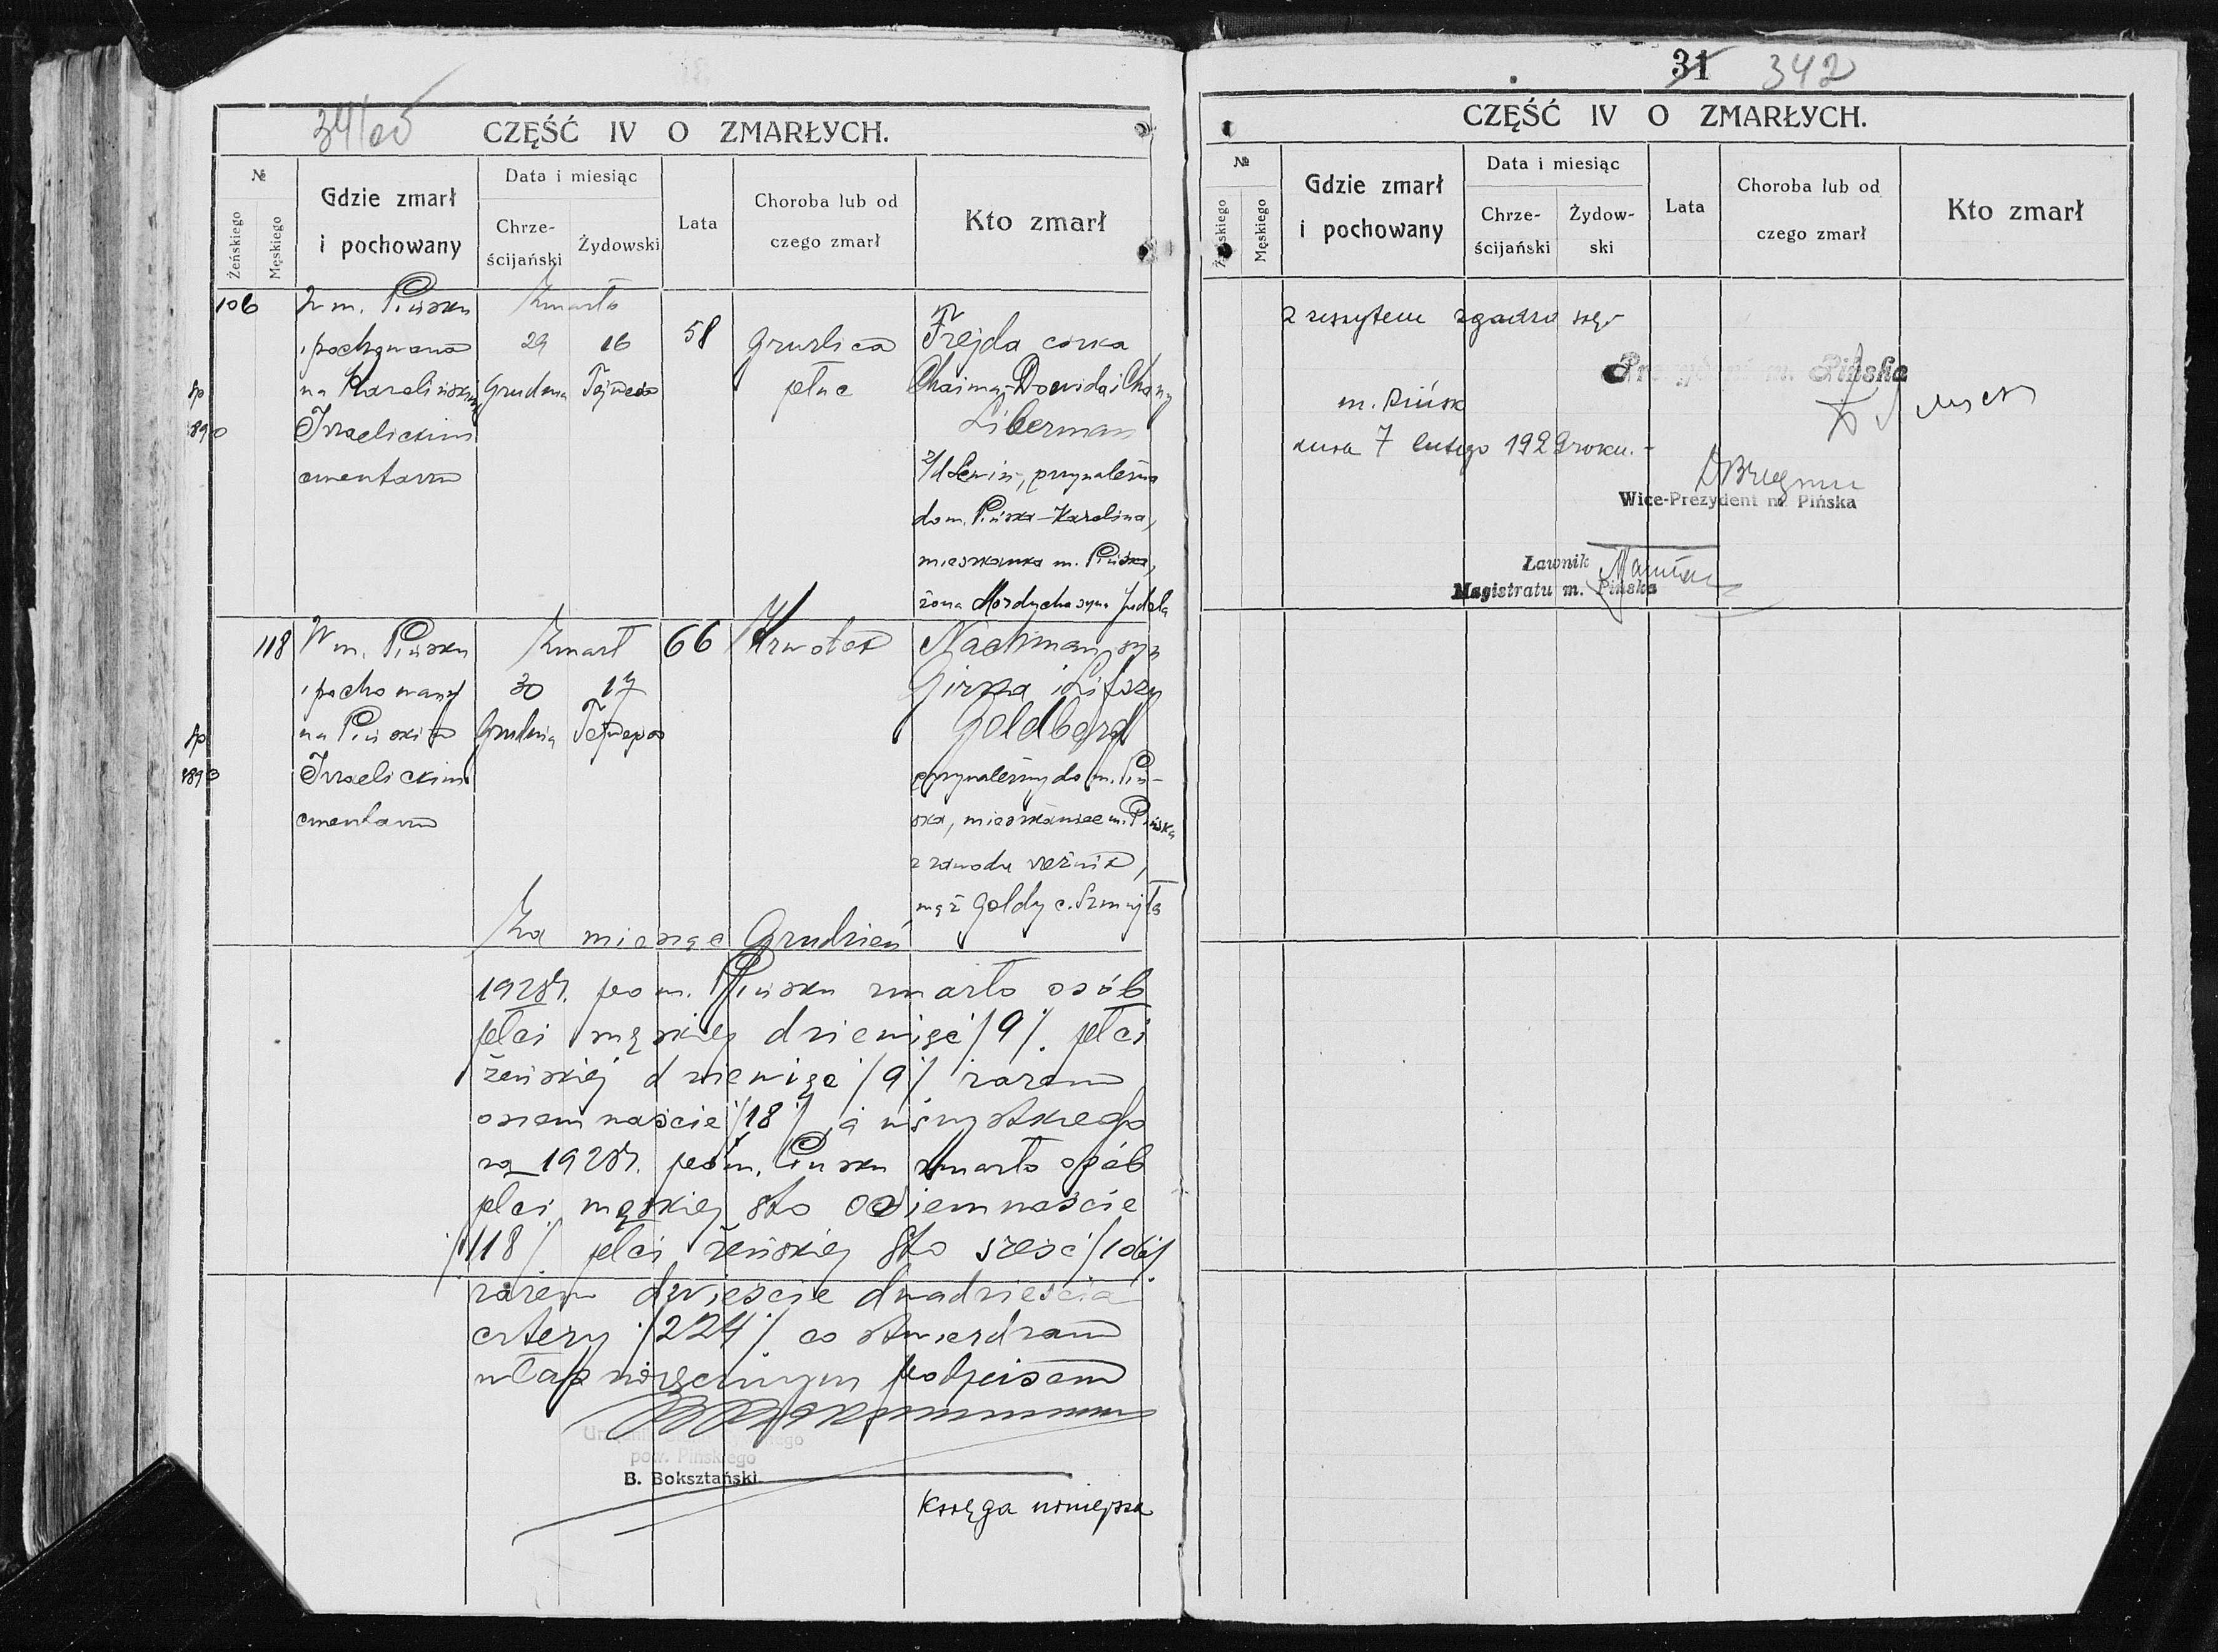 341
CZĘŚĆ IV O ZMARŁYCH.
№
Żeńskiego
Męskiego
Gdzie zmarł
i pochowany
Data i miesiąc
Chrze-
ścijański
Żydowski
Lata
Choroba lub od
czego zmarł
Kto zmarł
106
W m. Pińsku
i pochowana
na Karolińskim
Izraelickim
cmentarzu
Zmarła
29 16
Grudnia Tejwesa
58
Gruźlica
płuc
Frejda córka
Chaima-Dowida i Chany
Liberman
z/d Lewin, przynależna
do m. Pińska-Karolina,
mieszkanka m. Pińska,
żona Mordycha syna Judela
890
118
W m. Pińsku
i pochowany
na Pińskim
Izraelickim
cmentarzu
Zmarł
30 17
Grudnia Tejwesa
66
Krwotok
Nachman syn
Girsza i Lifszy
Goldberg
przynależny do m. Piń-
ska, mieszkaniec m. Pińska
z zawodu rzeźnik,
mąż Goldy c. Szmujła
893
Za miesiąc Grudzień
1928r. po m. Pińsku zmarło osób
płci męskiej dziewięć /9/. płci
żeńskiej dziewięć /9/ razem
osiemnaście /18/, a wszystkiego
za 1928r. po m. Pińsku zmarło osób
płci męskiej sto osiemnaście
/118/ płci żeńskiej sto sześć /106/
razem dwieście dwadzieścia
cztery /224/ co stwierdzam
własnoręcznym podpisem
pow. Pińskiego
B.Boksztański.
Księga niniejsza
31 342
CZĘŚĆ IV O ZMARŁYCH.
№
Żeńskiego
Męskiego
Gdzie zmarł
i pochowany
Data i miesiąc
Chrze-
ścijański
Żydow-
ski
Lata
Choroba lub od
czego zmarł
Kto zmarł
z zeszytem zgadza się.-
Prezydent m. Pińska
m. Pińsk
dnia 7 lutego 1929 roku.-
Wice-Prezydent m. Pińska
Ławnik
Magistratu m. Pińska